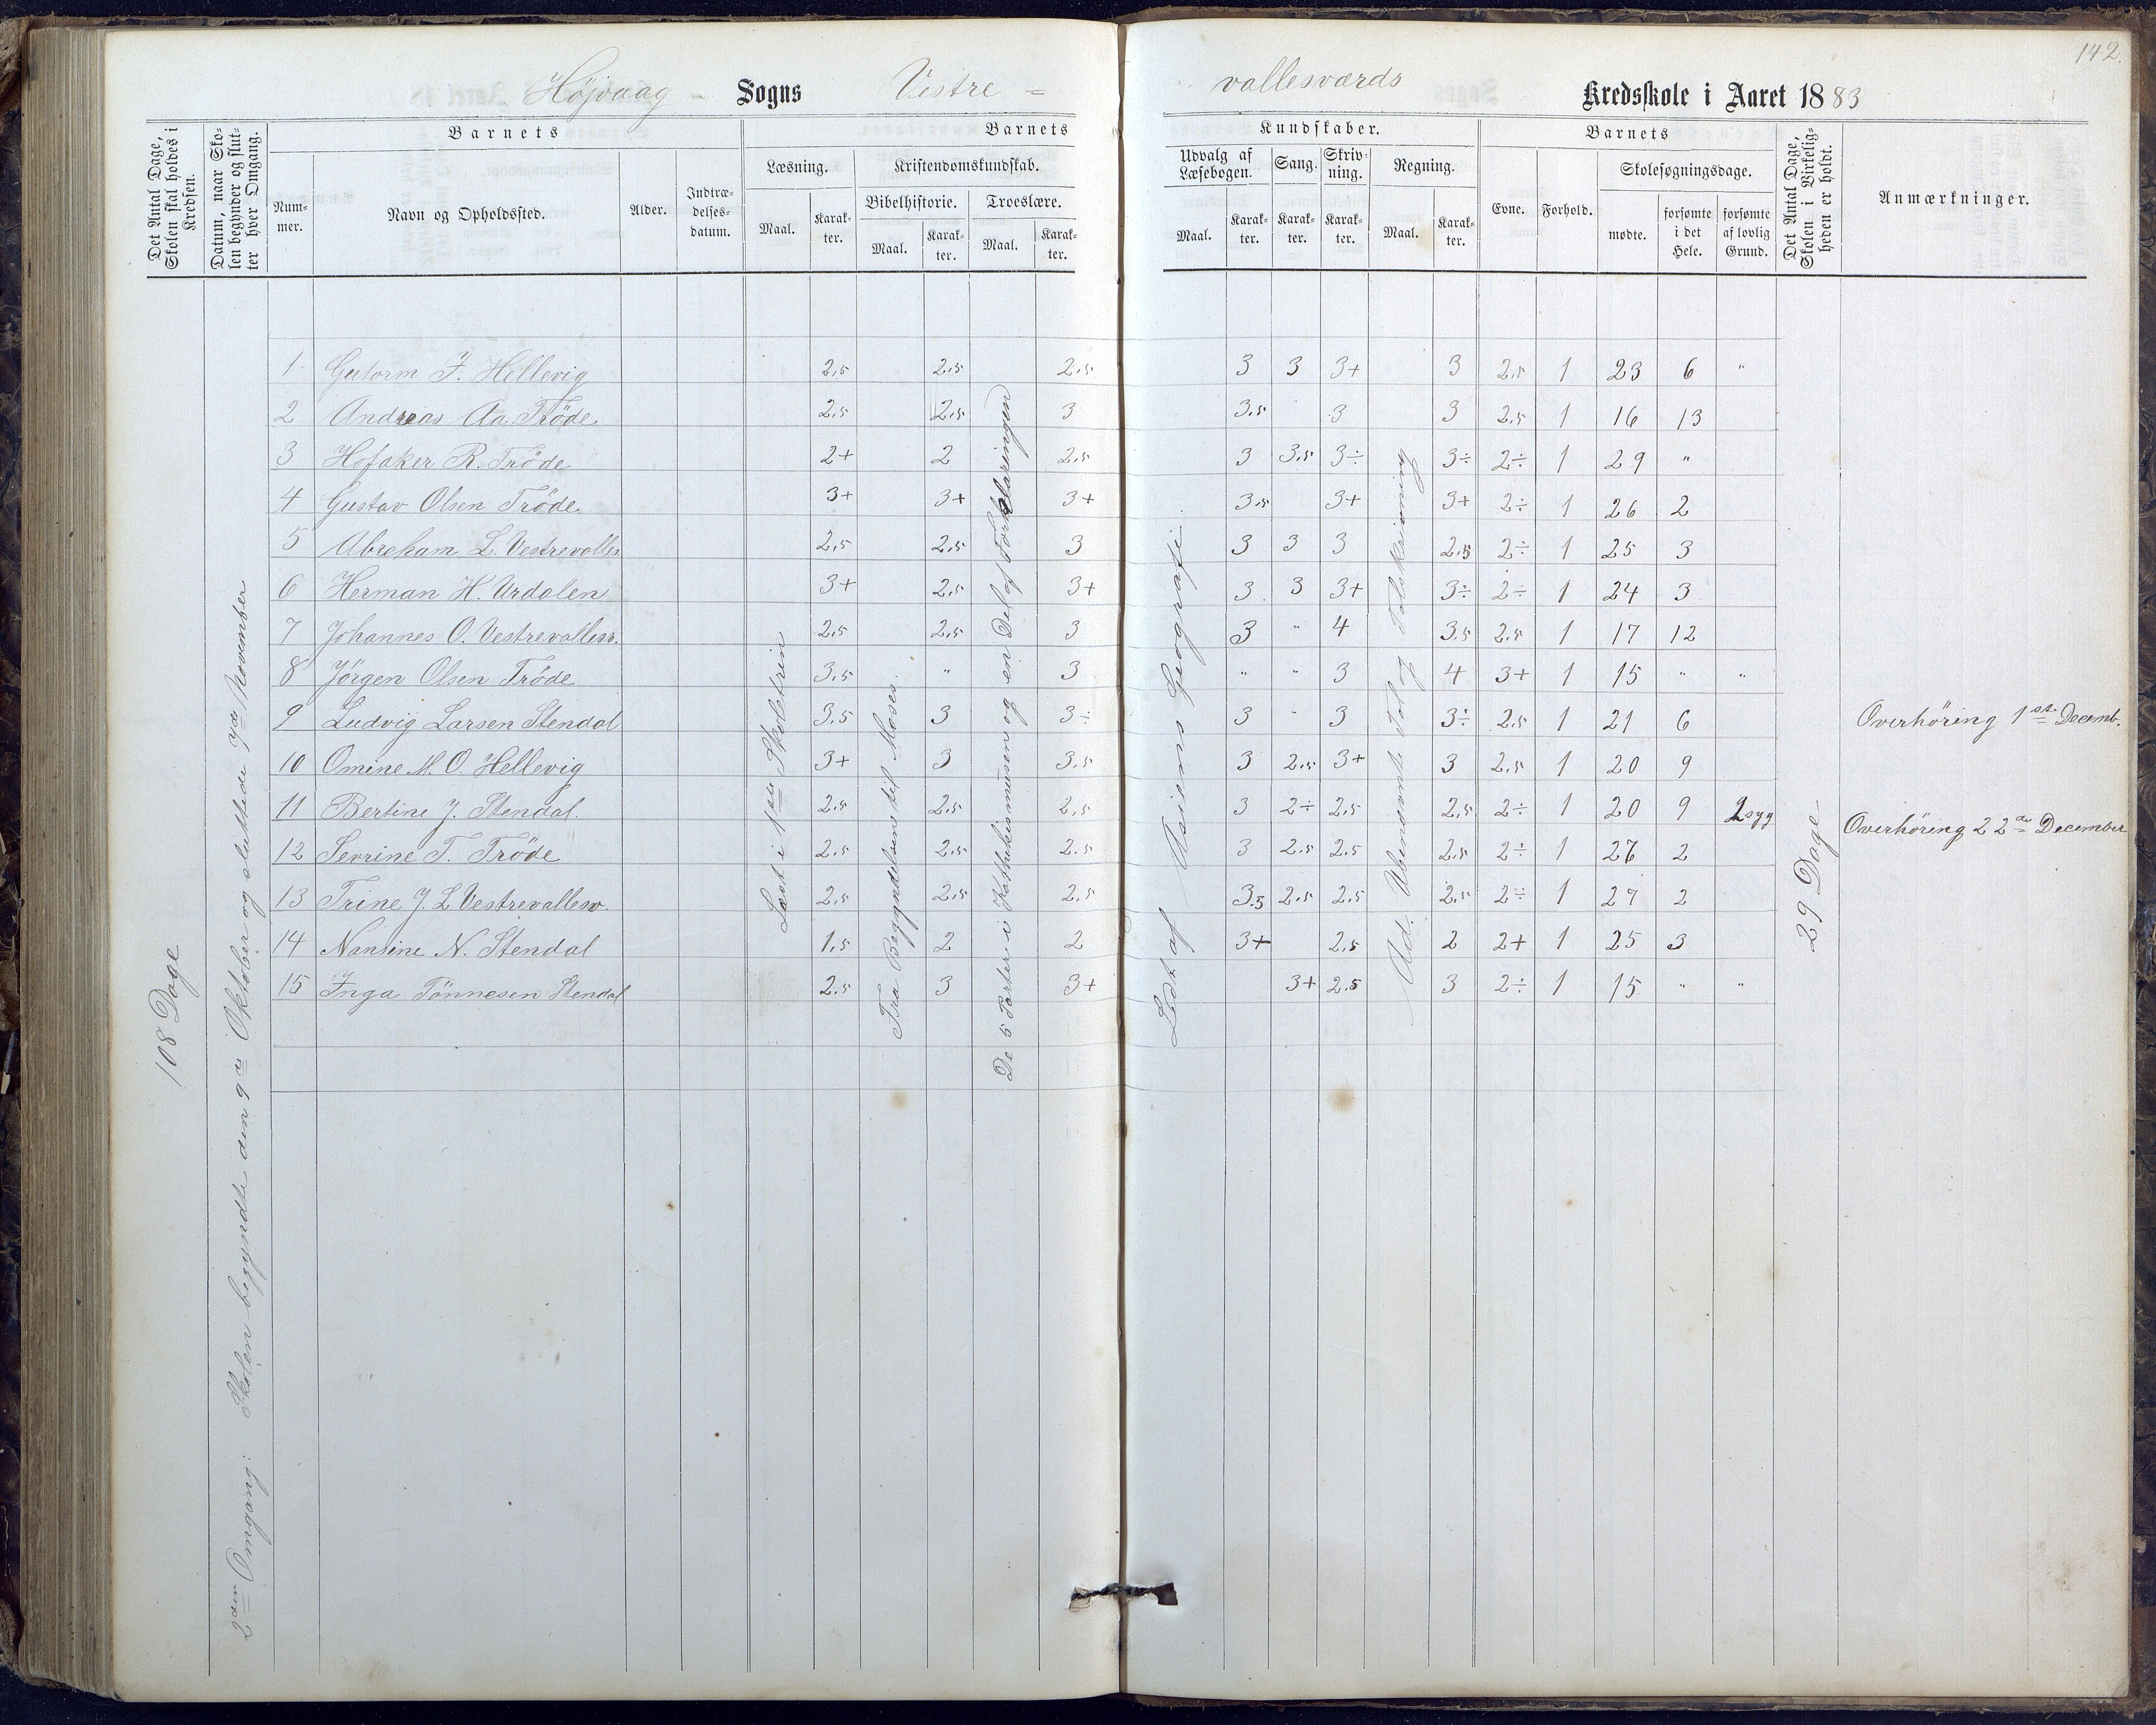 142.
Højvaag Sogns Vestre = vallesværds Kredsskole i Aaret 1883
Det Antal Dage, Skolen skal holdes i Kredsen.
Datum, naar Skolen begynder og slutter hver Omgang.
Barnets
Nummer.
Navn og Opholdssted.
Alder.
Indtrædelsesdatum.
Barnets
Læsning.
Maal.
Karakter.
Kristendomskundskab.
Bibelhistorie.
Maal.
Karakter.
Troeslære.
Maal.
Karakter.
Kundskaber.
Udvalg af Læsebogen.
Maal.
Karakter.
Sang.
Karakter.
Skrivning.
Karakter.
Regning.
Maal.
Karakter.
Barnets
Evne.
Forhold.
Skolesøgningsdage.
mødte.
forsømte i det Hele.
forsømte af lovlig Grund.
Det Antal Dage, Skolen i Virkeligheden er holdt.
Anmærkninger.
108 Dage
2den Omgang: Skolen begyndte den 9de Oktober og sluttede 7de November
Læst i 1ste Skoletrin
Fra Begyndelsen til Moses.
De 5 Parter i Katekismusen og en Del af Forklaringen
Lært af Asiens Geografi.
Ad. Ubenævnte Tal og Talskrivning
29 Dage
1 Gutorm F. Hellevig 2,5 2,5 2,5 3 3 3+ 3 2,5 1 23 6 "
2 Andreas Aa. Trøde 2,5 2,5 3 3,5 3 3 2,5 1 16 13
3 Hofaker R. Trøde 2+ 2 2,5 3 3,5 3÷ 3÷ 2÷ 1 29 "
4 Gustav Olsen Trøde 3+ 3+ 3+ 3,5 3+ 3+ 2÷ 1 26 2
5 Abreham L. Vestrevalles. 2,5 2,5 3 3 3 3 2,5 2÷ 1 25 3
6 Herman H. Urdalen 3+ 2,5 3+ 3 3 3+ 3÷ 2÷ 1 24 3
7 Johannes O. Vestrevallesv. 2,5 2,5 3 3 " 4 3,5 2,5 1 17 12
8 Jörgen Olsen Trøde 3,5 " 3 " " 3 4 3+ 1 15 " "
9 Ludvig Larsen Stendal 3,5 3 3÷ 3 " 3 3÷ 2,5 1 21 6 Overhöring 1ste Decemb.
10 Omine M. O. Hellevig 3+ 3 3,5 3 2,5 3+ 3 2,5 1 20 9
11 Bertine J. Stendal. 2,5 2,5 2,5 3 2÷ 2,5 2,5 2÷ 1 20 9 2 syg Overhöring 22de December
12 Sevrine T. Trøde 2,5 2,5 2,5 3 2,5 2,5 2,5 2÷ 1 27 2
13 Trine J. L Vestrevallesv. 2,5 2,5 2,5 3,5 2,5 2,5 2,5 2÷ 1 27 2
14 Nansine N. Stendal 1,5 2 2 3+ 2,5 2 2+ 1 25 3
15 Inga Tönnesen Stendal 2,5 3 3+ 3+ 2,5 3 2÷ 1 15 " "